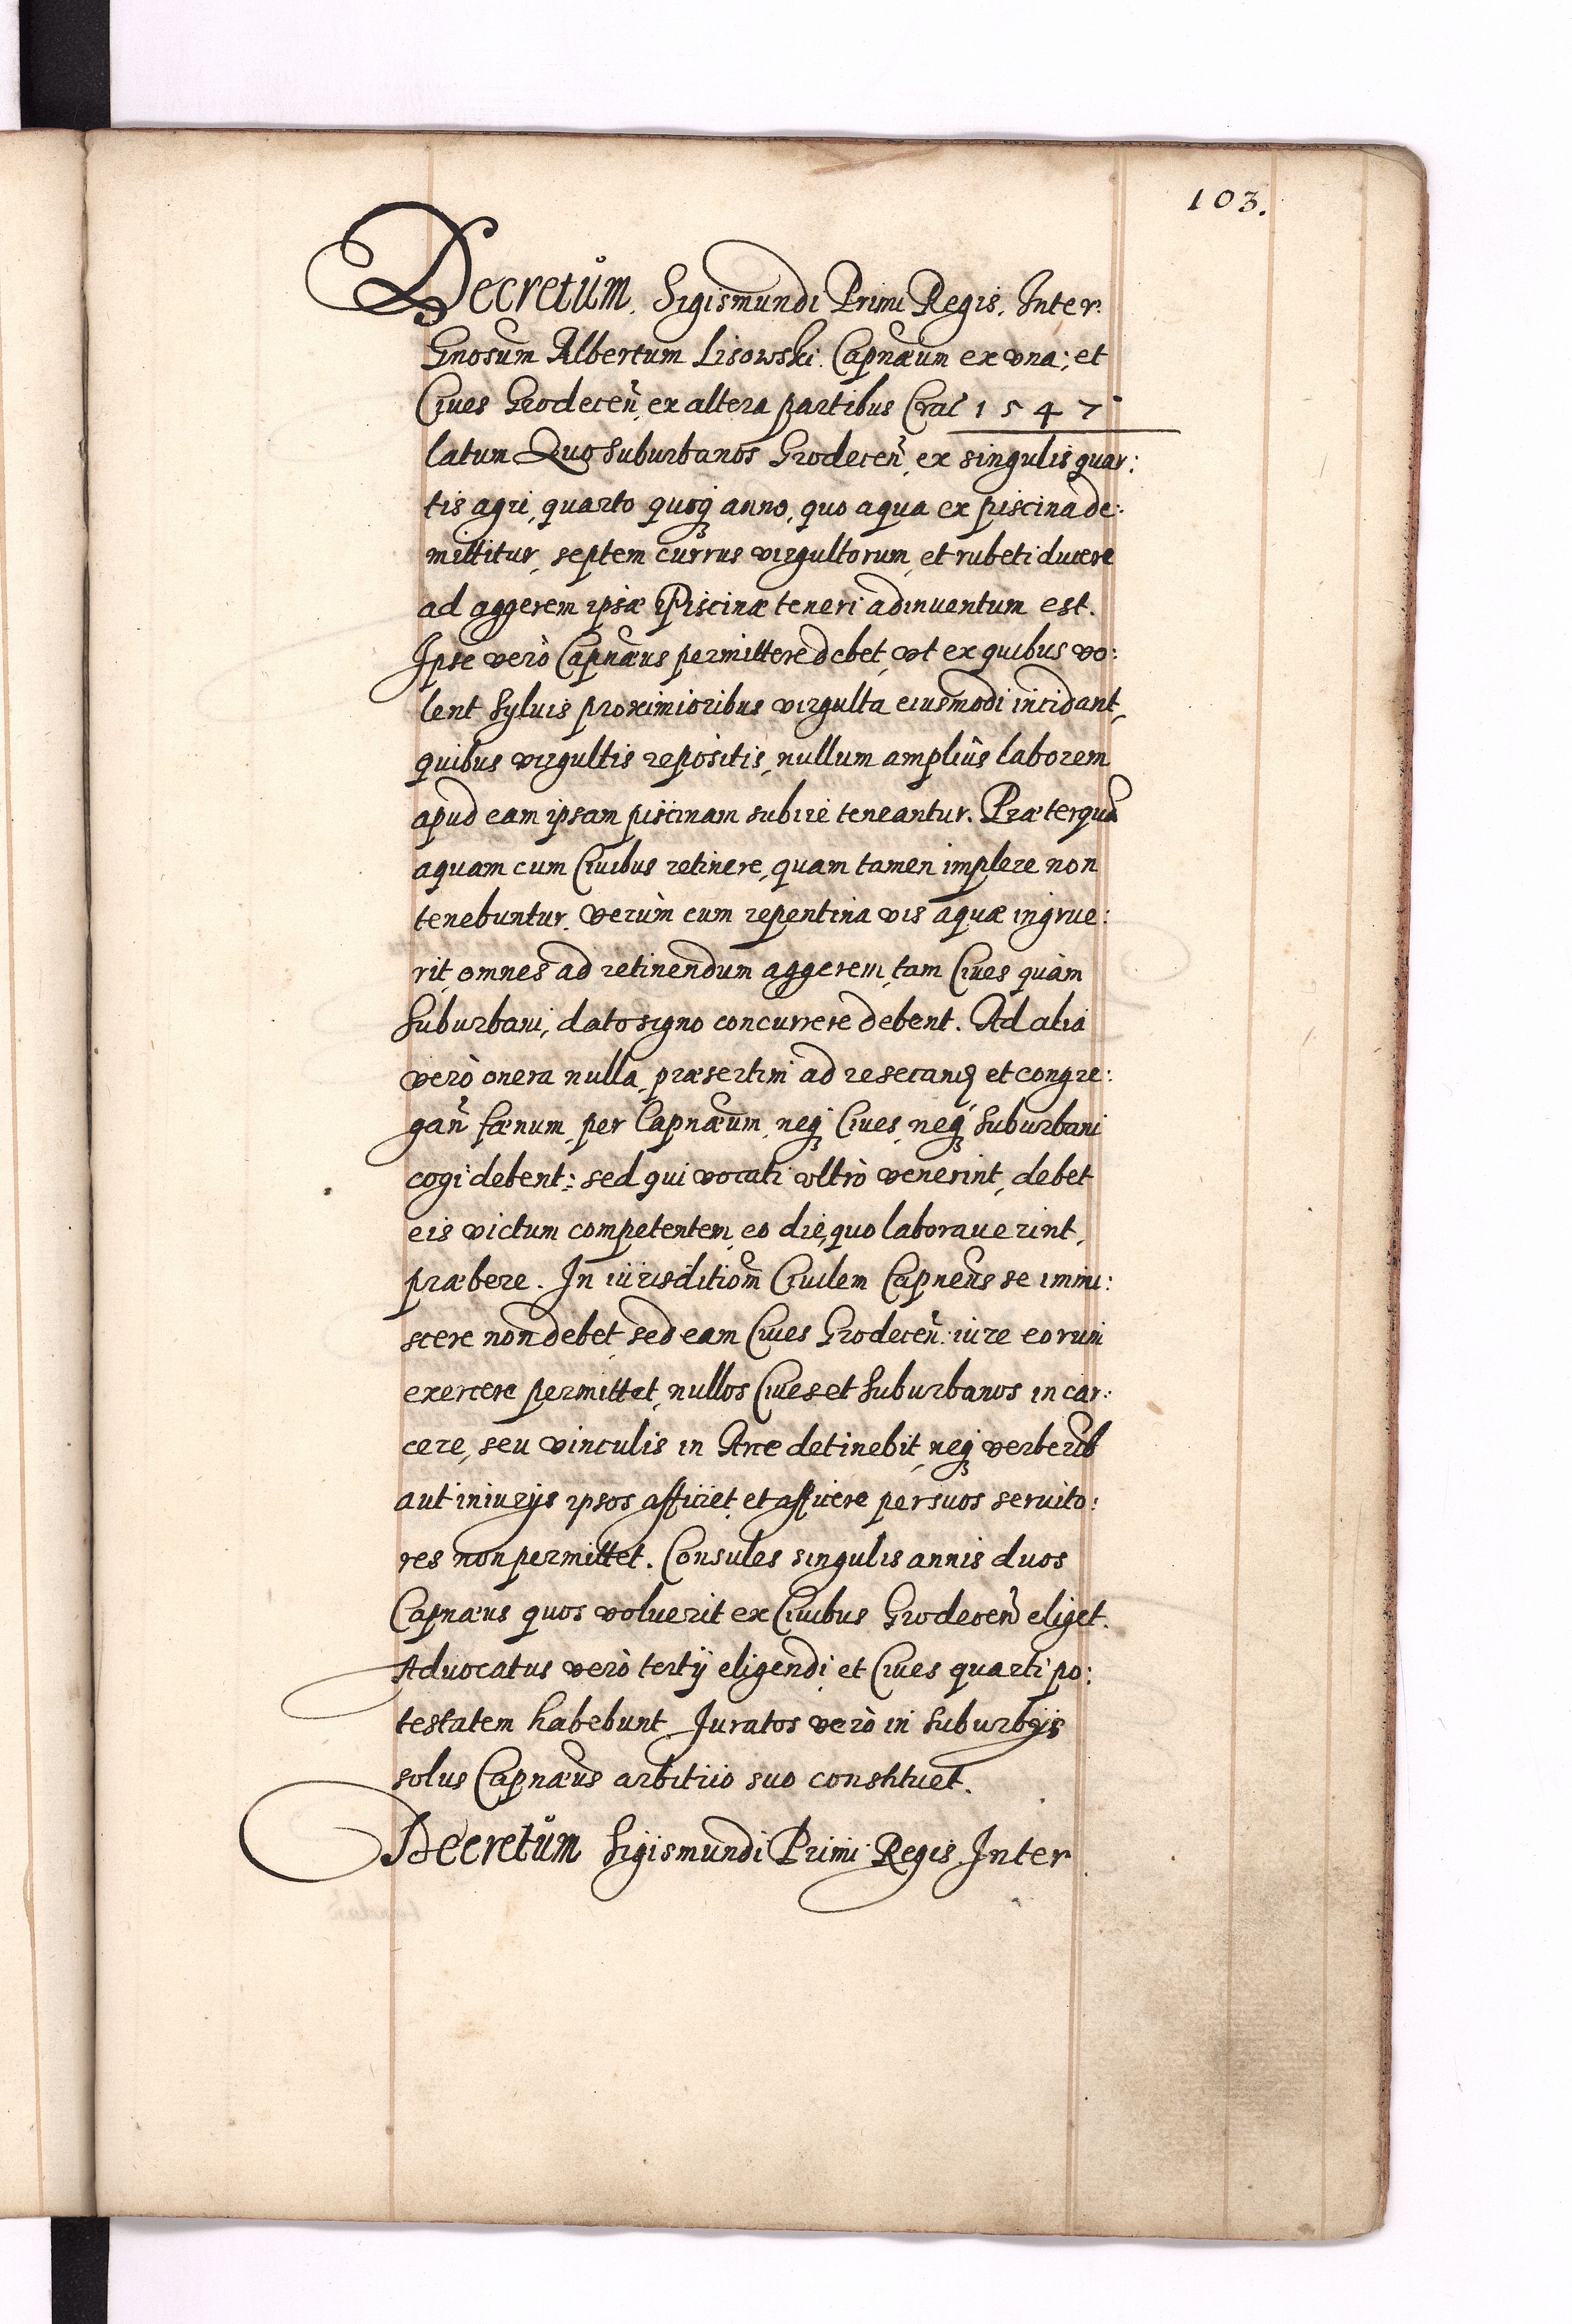 103.
Decretum Sigismundi Primi Regis. Inter
Gnosum Albertum Lisowski Capnæum ex vna; et
Ciues Grodeceñ ex altera partibus Crac 1547
latum Quo Suburbanos Grodeceñ ex singulis quar:
tis agri, quarto quoq anno, quo aqua ex piscina de:
mittitur, septem currus virgultorum, et rubeti ducere
ad aggerem ipsæ Piscinæ teneri adinuentum est.
Ipse verò Capnæus permittere debet, vt ex quibus vo:
lent Syluis proximioribus virgulta eiusmodi incidant,
quibus virgultis repositis, nullum ampliûs laborem
apud eam ipsam piscinam subire teneantur. Præterquã
aquam cum Ciuibus retinere, quam tamen implere non
tenebuntur. Verùm cum repentina vis aquæ ingrue:
rit, omnes ad retinendum aggerem, tam Ciues quàm
Suburbani, dato signo concurrere debent. Ad alia
verò onera nulla, præsertim ad resecand et congre:
gañ fænum, per Capnæum, neq Ciues, neq Suburbani
cogi debent: sed qui vocati vltrò venerint, debet
eis victum competentem, eo die, quo laborauerint,
præbere. In iurisditiom Ciuilem Capneus se immi:
scere non debet, sed eam Ciues Grodeceñ: iure eorum
exercere permittet, nullos Ciues et Suburbanos in car:
cere, seu vinculis in Arce detinebit, neq verberib
aut iniurijs ipsos afficiet, et afficere per suos seruito:
res non permittet. Consules singulis annis duos
Capnæus quos voluerit ex Ciuibus Grodeceñ eliget.
Aduocatus verò tertij eligendi, et Ciues quarti po:
testatem habebunt. Juratos verò in Suburbijs
solus Capnæus arbitrio suo constituet.
Decretum Sigismundi Primi Regis Inter